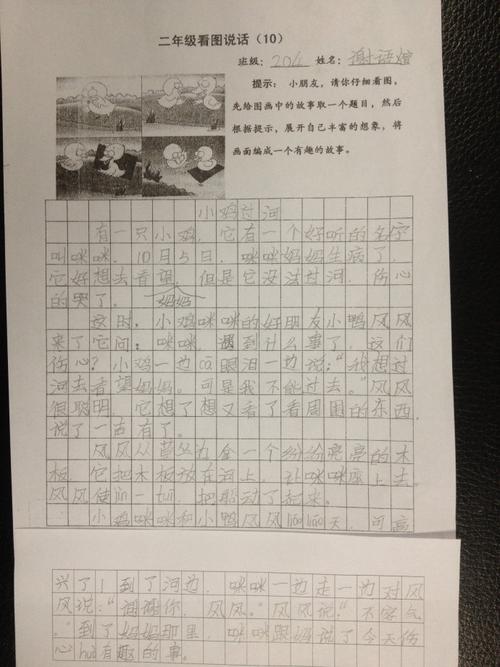 二年级看图说话（10）
班级：204 姓名：谢语
提示： 小朋友，请你仔细看图，
先给图画中的故事取一个题目，然后
根据提示，展开自己丰富的想象，将
画面编成一个有趣的故事。
小鸡过河
有一只小鸡，它有一个好听的名字
叫咪咪。10月5日，咪咪妈妈生病了，
它好想去看望，但是它没法过河，伤心
的哭了。 妈妈
这时，小鸡咪咪的好朋友小鸭风风
来了它问：咪咪，遇到什么事了，这们
伤心？小鸡一边cā眼泪一边说：“我想过
河去看望妈妈。可是我不能过去。”风风
很聪明，它想了想又看了看周围的东西，
说了一声有了。
风风从草丛边拿一个纷纷亮亮的木
板，它把木板放在河上，让咪咪座上去
风风使jìn一tuī，把船动了起来。
小鸡咪咪和小鸭风风liáo liáo天，可高
兴了！到了河边，咪咪一边走一边对风
风说：“谢谢你，风风。”风风说：“不客气
。”到了妈妈那里，咪咪跟妈妈说了今天伤
心huò有趣的事。